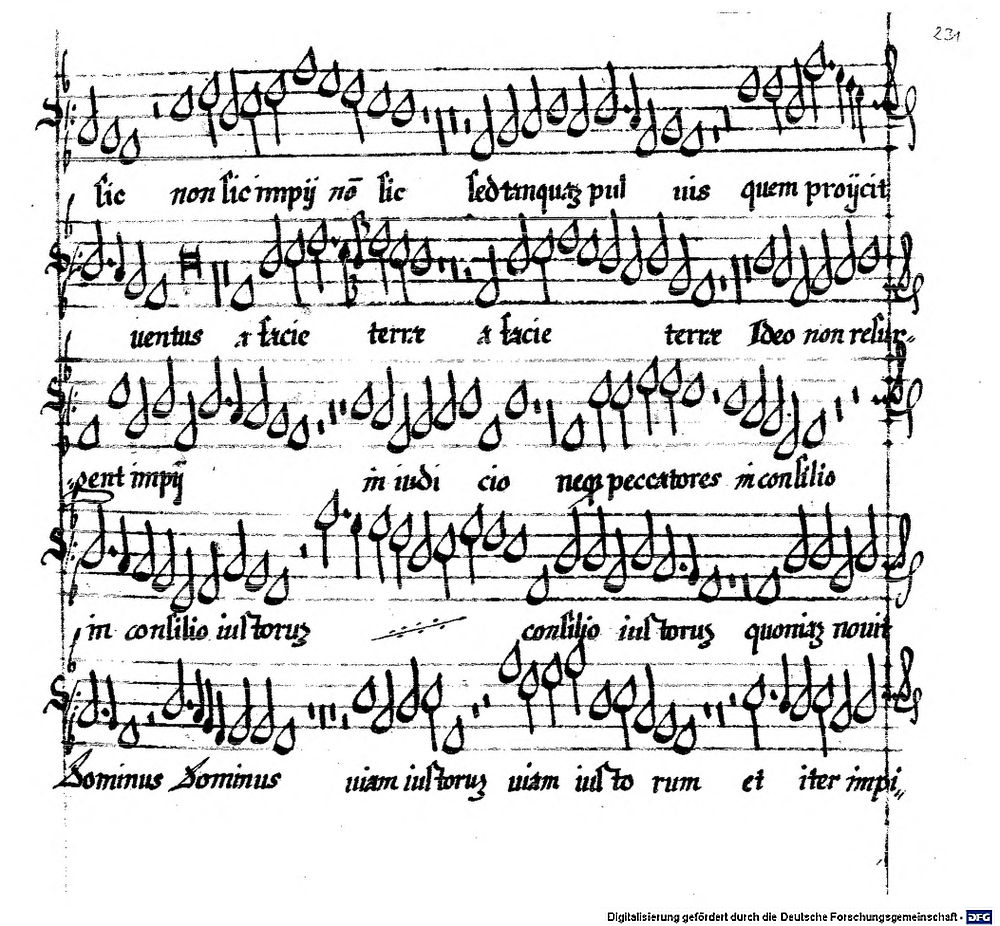 231
sic non sic impij nō sic sed tanquaʒ pul uis quem proijcit
uentus a facie terræ a facie terræ Ideo non resur-
gent impij in iudi cio neqʒ peccatores in consilio
in consilio iustoruʒ consilio iustoruʒ quoniaʒ novit
Dominus Dominus uiam iustoruʒ uiam iusto rum et iter impi,,
Digitalisierung gefördert durch die Deutsche Forschungsgemeinschaft - DFG